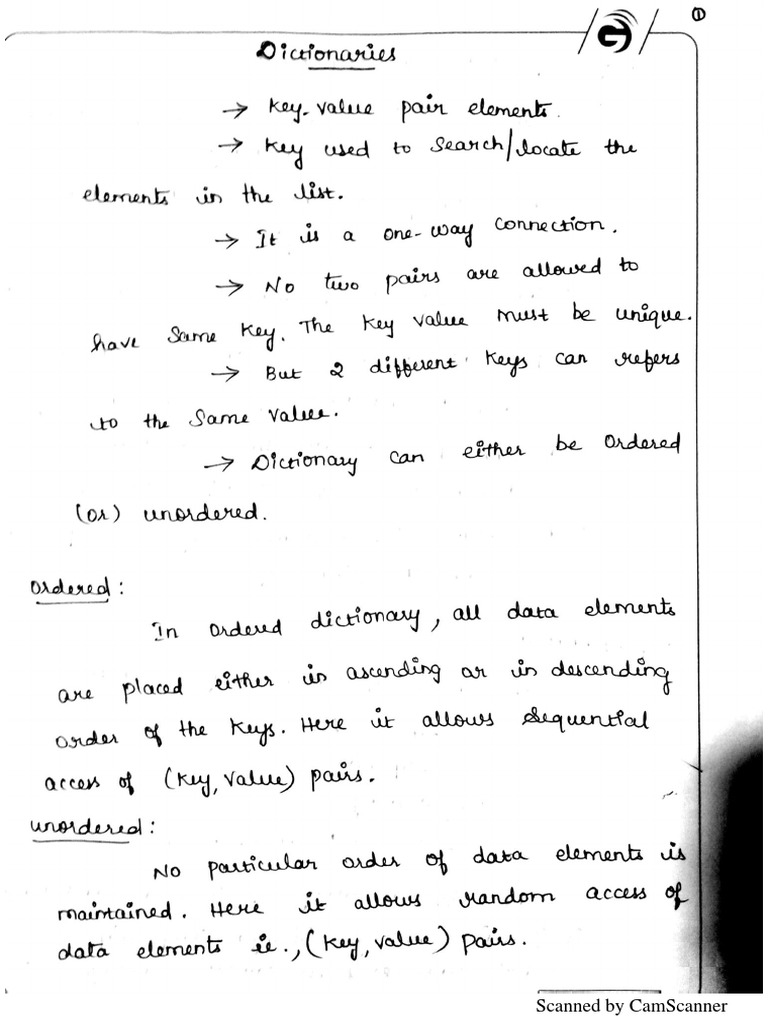 ①
Dictionaries
→ Key-value pair elements.
→ Key used to search/locate the
elements in the list.
→ It is a one-way connection.
→ No two pairs are allowed to
have same key. The key value must be unique.
→ But 2 different keys can refers
to the same value.
→ Dictionary can either be ordered
(or) unordered.
Ordered:
In ordered dictionary, all data elements
are placed either in ascending or in descending
order of the keys. Here it allows sequential
access of (key, value) pairs.
unordered:
No particular order of data elements is
maintained. Here it allows random access of
data elements ie., (key, value) pairs.
Scanned by CamScanner